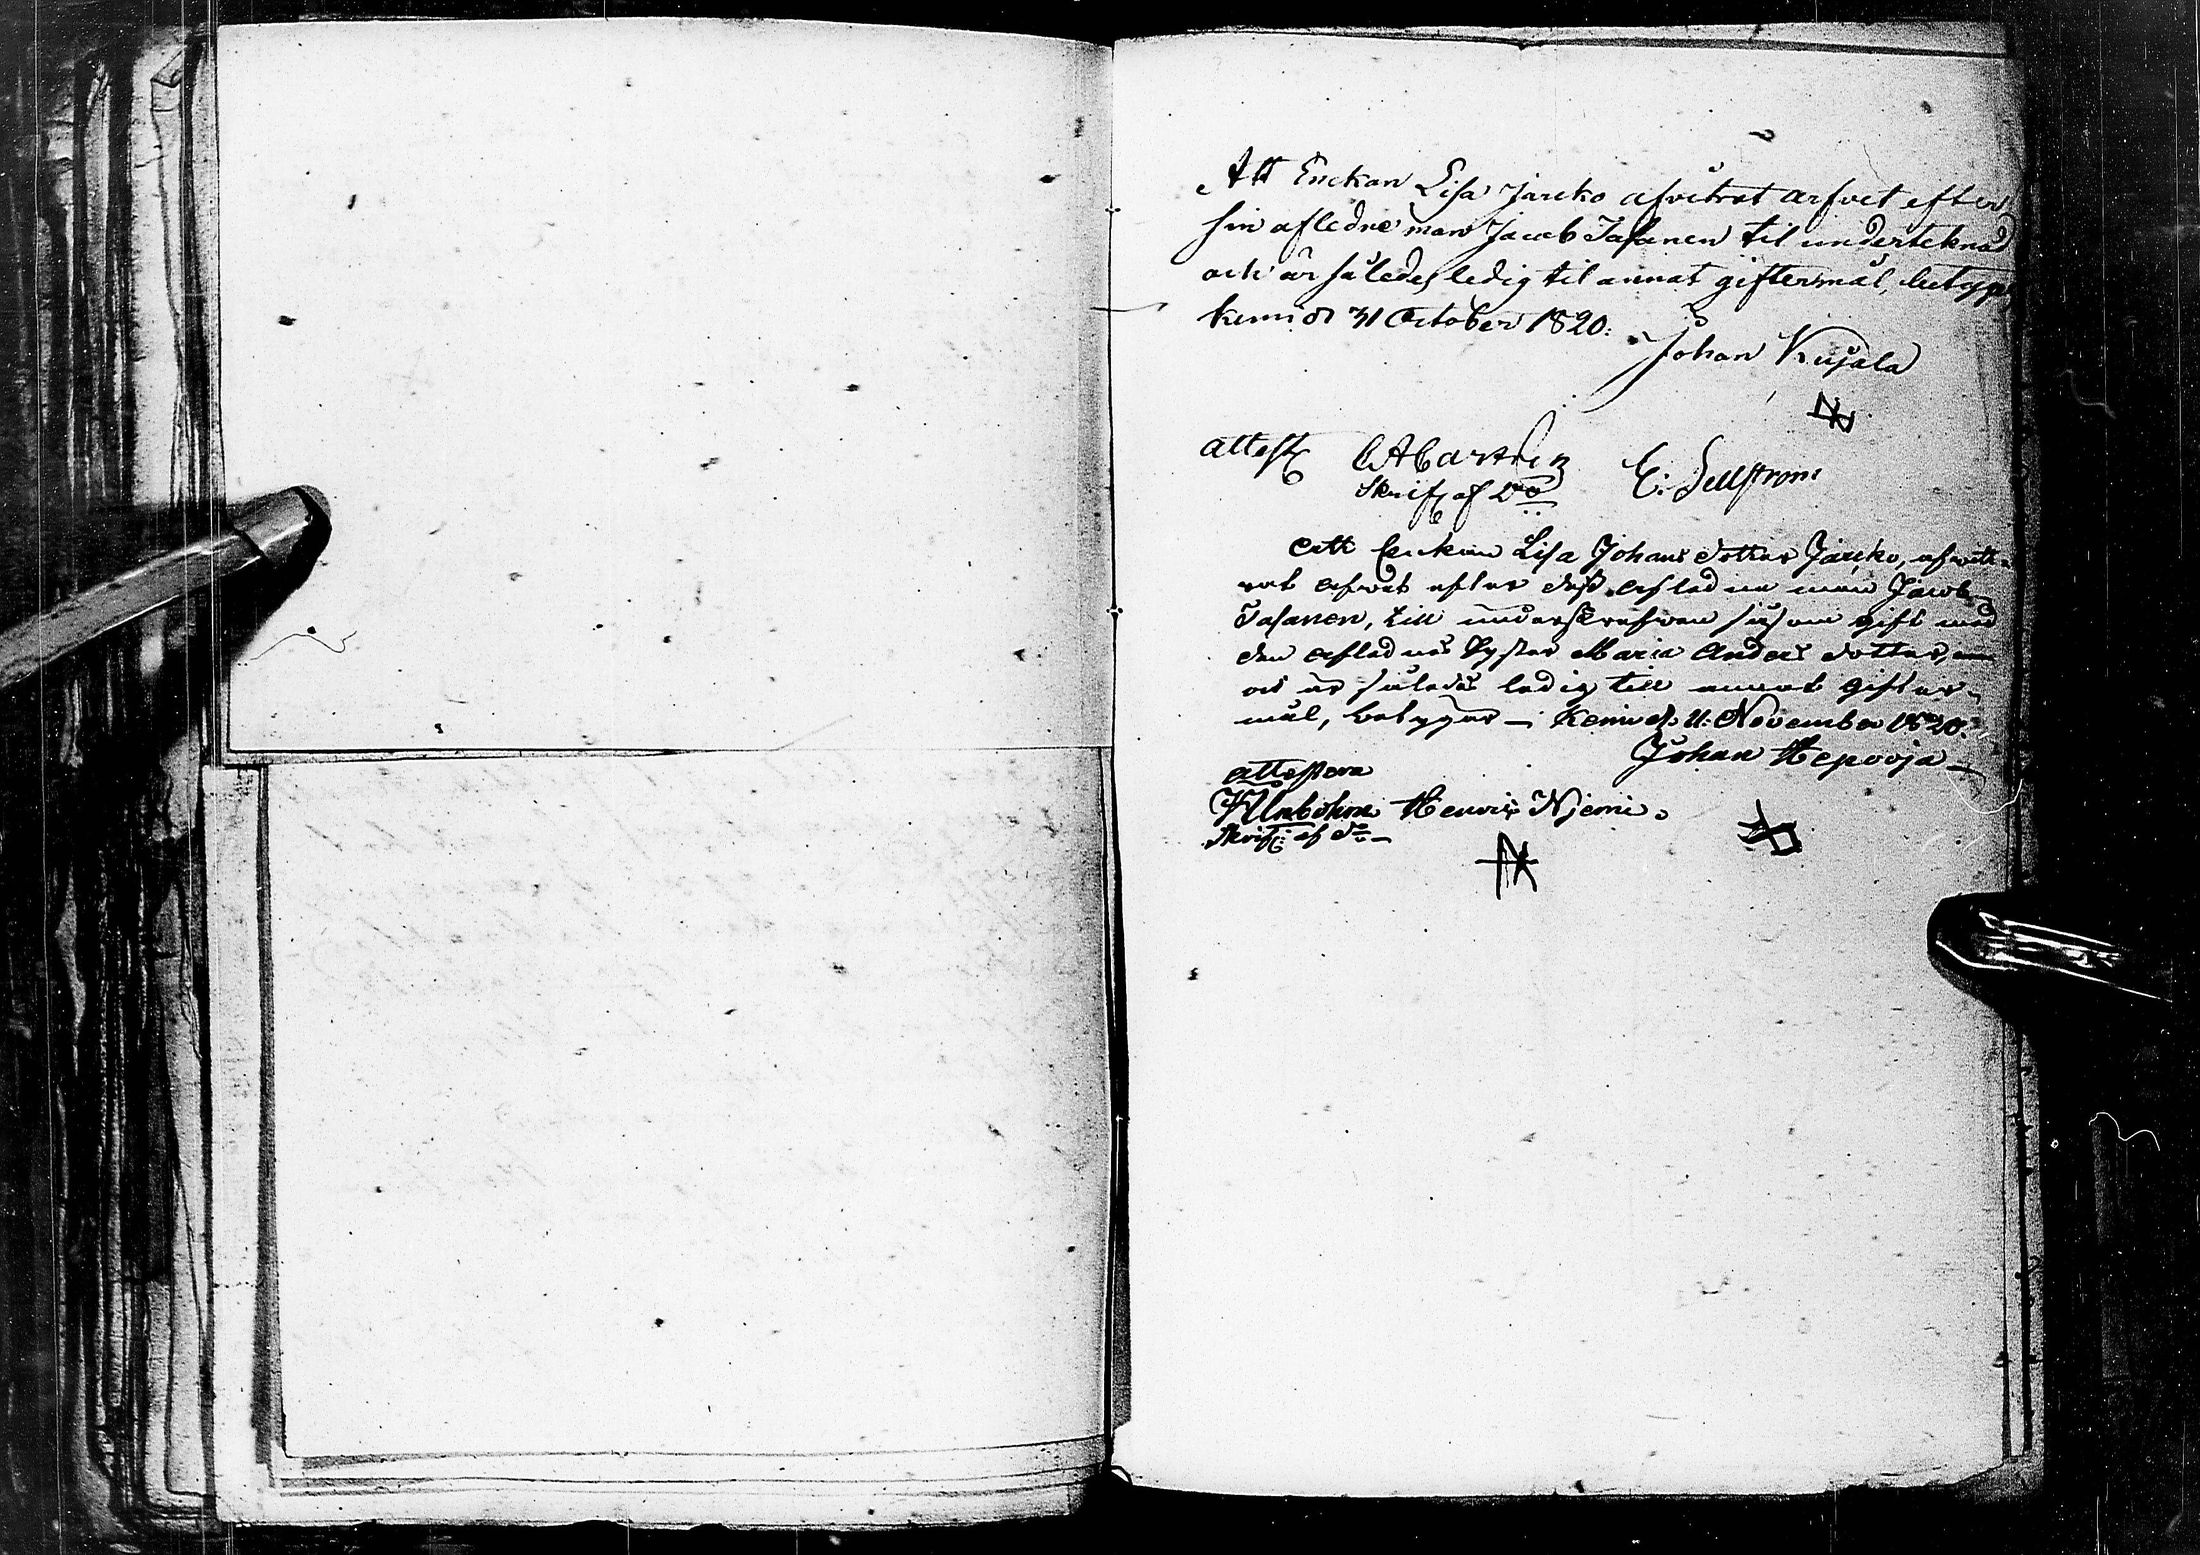 Att Enckan Lisa Jarcko afvitrat arfvet efter
sin afledne man Jacob Tasanen til underteknad
och är således ledig til annat giftermål, betyga
Kemi d 31 October 1820.
Johan Kujala
attest
Skrif: af Do E. Sellstrom
att Enckan Lisa Johans dotter Jarcko, afvitt-
rat arfvet efter dess afledne man Jacob
Tasanen, till underskrefven såsom gift med
den aflednes Syster Maria Anders dotter,
och är således ledig till annat gifter-
mål, betygar – Kemi d. 11. November 1820.
Johan Hepooja
attestera
Henric Niemi.
Skrif: af do